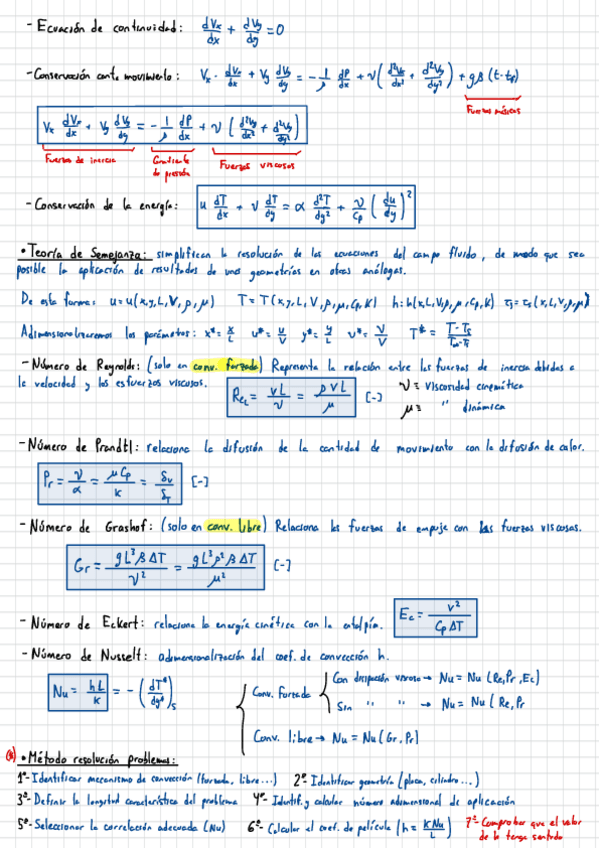 - Ecuación de continuidad: dVx/dx + dVy/dy = 0
- Conservación cante movimiento: Vx · dVx/dx + Vy dVy/dy = - 1/ρ dP/dx + ν (d²Vx/dx² + d²Vy/dy²) + gβ (t-tf)
Fuerzas másicas
Vx dVx/dx + Vy dVy/dy = - 1/ρ dP/dx + ν (d²Vy/dx² + d²Vy/dy²)
Fuerzas de inercia Gradiente de presión Fuerzas viscosas
- Conservación de la energía: u dT/dx + v dT/dy = α d²T/dy² + ν/Cp (du/dy)²
• Teoría de Semejanza: simplifican la resolución de las ecuaciones del campo fluido, de modo que sea
posible la aplicación de resultados de unas geometrías en otras análogas.
De esta forma: u=u(x,y,L,V,ρ,μ) T=T(x,y,L,V,ρ,μ,Cp,K) h=h(x,L,V,ρ,μ,Cp,K) τs=τs(x,L,V,ρ,μ)
Adimensionalizaremos los parámetros: x*= x/L u*= u/V y*= y/L v*= v/V T*= T-Ts/T∞-Ts
- Número de Reynolds: (solo en conv. forzada) Representa la relación entre las fuerzas de inercia debidas a
la velocidad y los esfuerzos viscosos. Re_L = vL/ν = ρvL/μ [-] ν = viscosidad cinemática
μ = " dinámica
- Número de Prandtl: relaciona la difusión de la cantidad de movimiento con la difusión de calor.
Pr = ν/α = μCp/K = δv/δT [-]
- Número de Grashof: (solo en conv. libre) Relaciona las fuerzas de empuje con las fuerzas viscosas.
Gr = gL³βΔT/ν² = gL³ρ²βΔT/μ² [-]
- Número de Eckert: relaciona la energía cinética con la entalpía. Ec = v²/CpΔT
- Número de Nusselt: adimensionalización del coef. de convección h.
Nu = hL/K = - (dT*/dy*)s Conv. forzada Con disipación viscosa → Nu = Nu (Re,Pr,Ec)
Sin " " → Nu = Nu (Re,Pr
Conv. libre → Nu = Nu (Gr,Pr)
(*) • Método resolución problemas:
1º- Identificar mecanismo de convección (forzada, libre...) 2º- Identificar geometría (placa, cilindro...)
3º- Definir la longitud característica del problema 4º- Identif. y calcular número adimensional de aplicación
5º- Seleccionar la correlación adecuada (Nu) 6º- Calcular el coef. de película (h = KNu/L) 7º- Comprobar que el valor
de h tenga sentido